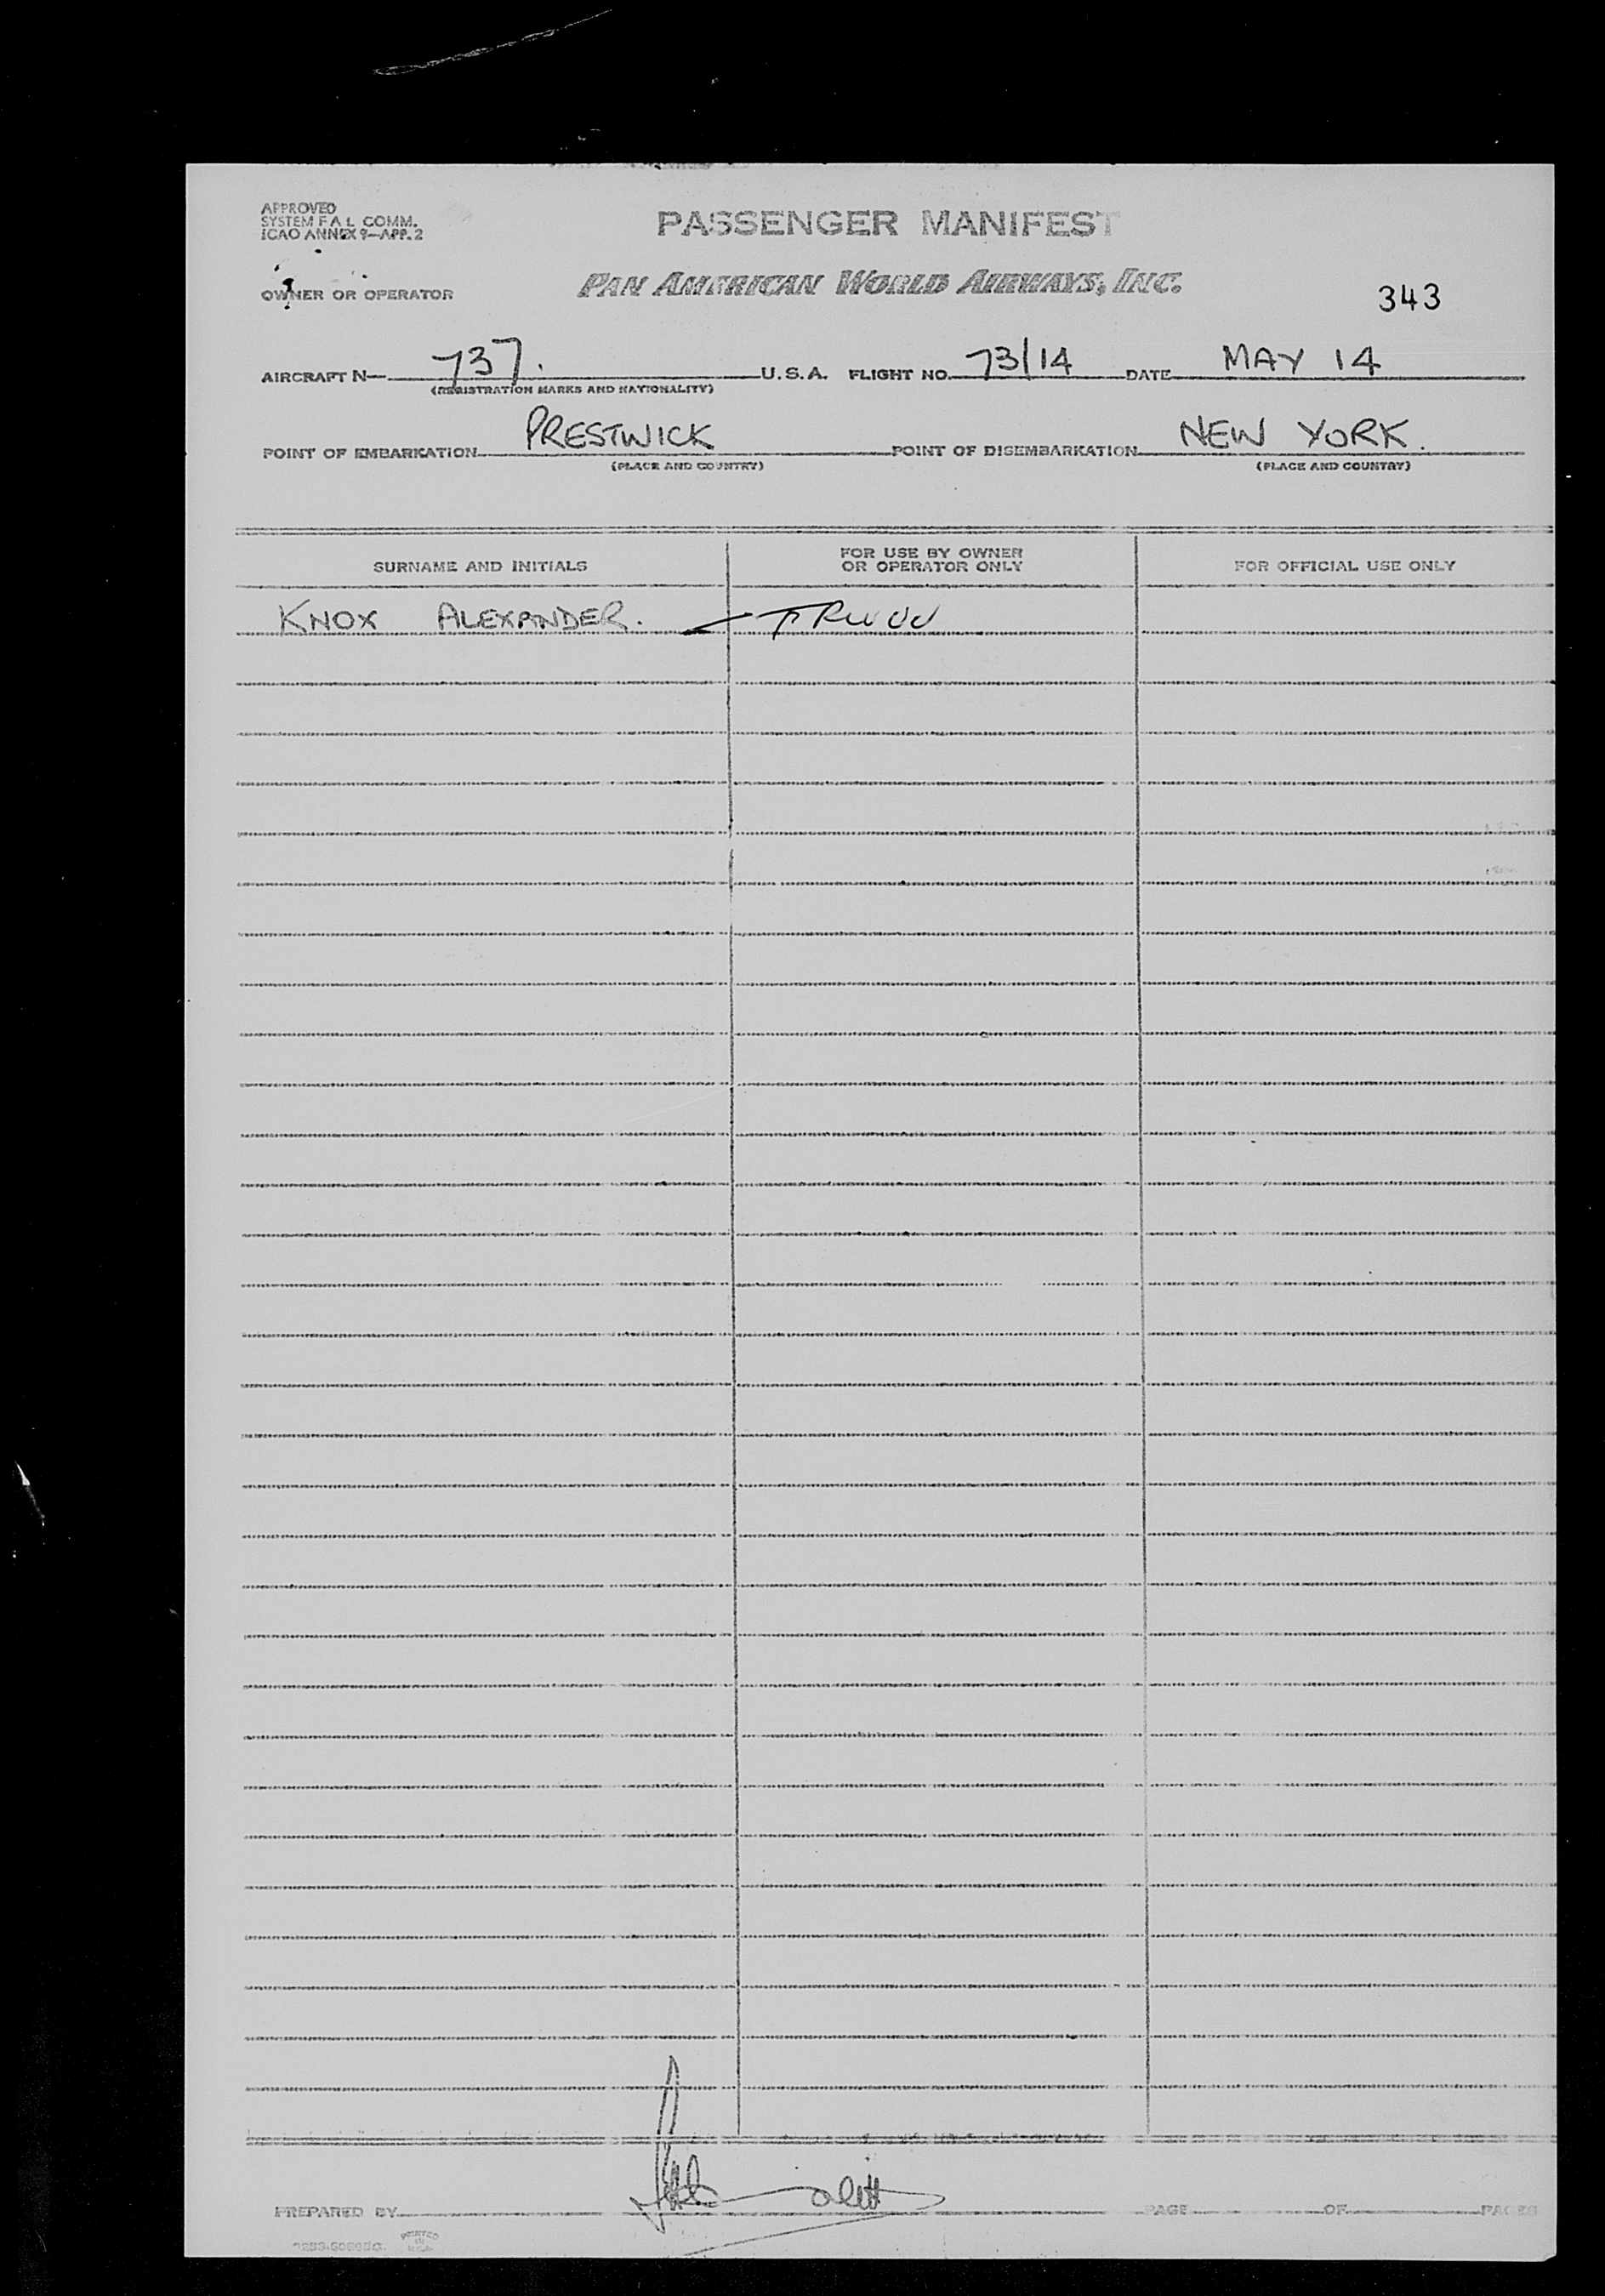 APPROVED
SYSTEM F.A.L. COMM.
ICAO ANNEX 9—APP. 2
PASSENGER MANIFEST
OWNER OR OPERATOR PAN AMERICAN WORLD AIRWAYS, INC. 343
AIRCRAFT N— 737. U.S.A. FLIGHT NO. 73/14 DATE MAY 14
(REGISTRATION MARKS AND NATIONALITY)
POINT OF EMBARKATION PRESTWICK POINT OF DISEMBARKATION NEW YORK.
(PLACE AND COUNTRY) (PLACE AND COUNTRY)
SURNAME AND INITIALS FOR USE BY OWNER OR OPERATOR ONLY FOR OFFICIAL USE ONLY
KNOX ALEXANDER.
PREPARED BY PAGE OF PAGES
PRINTED IN U.S.A.